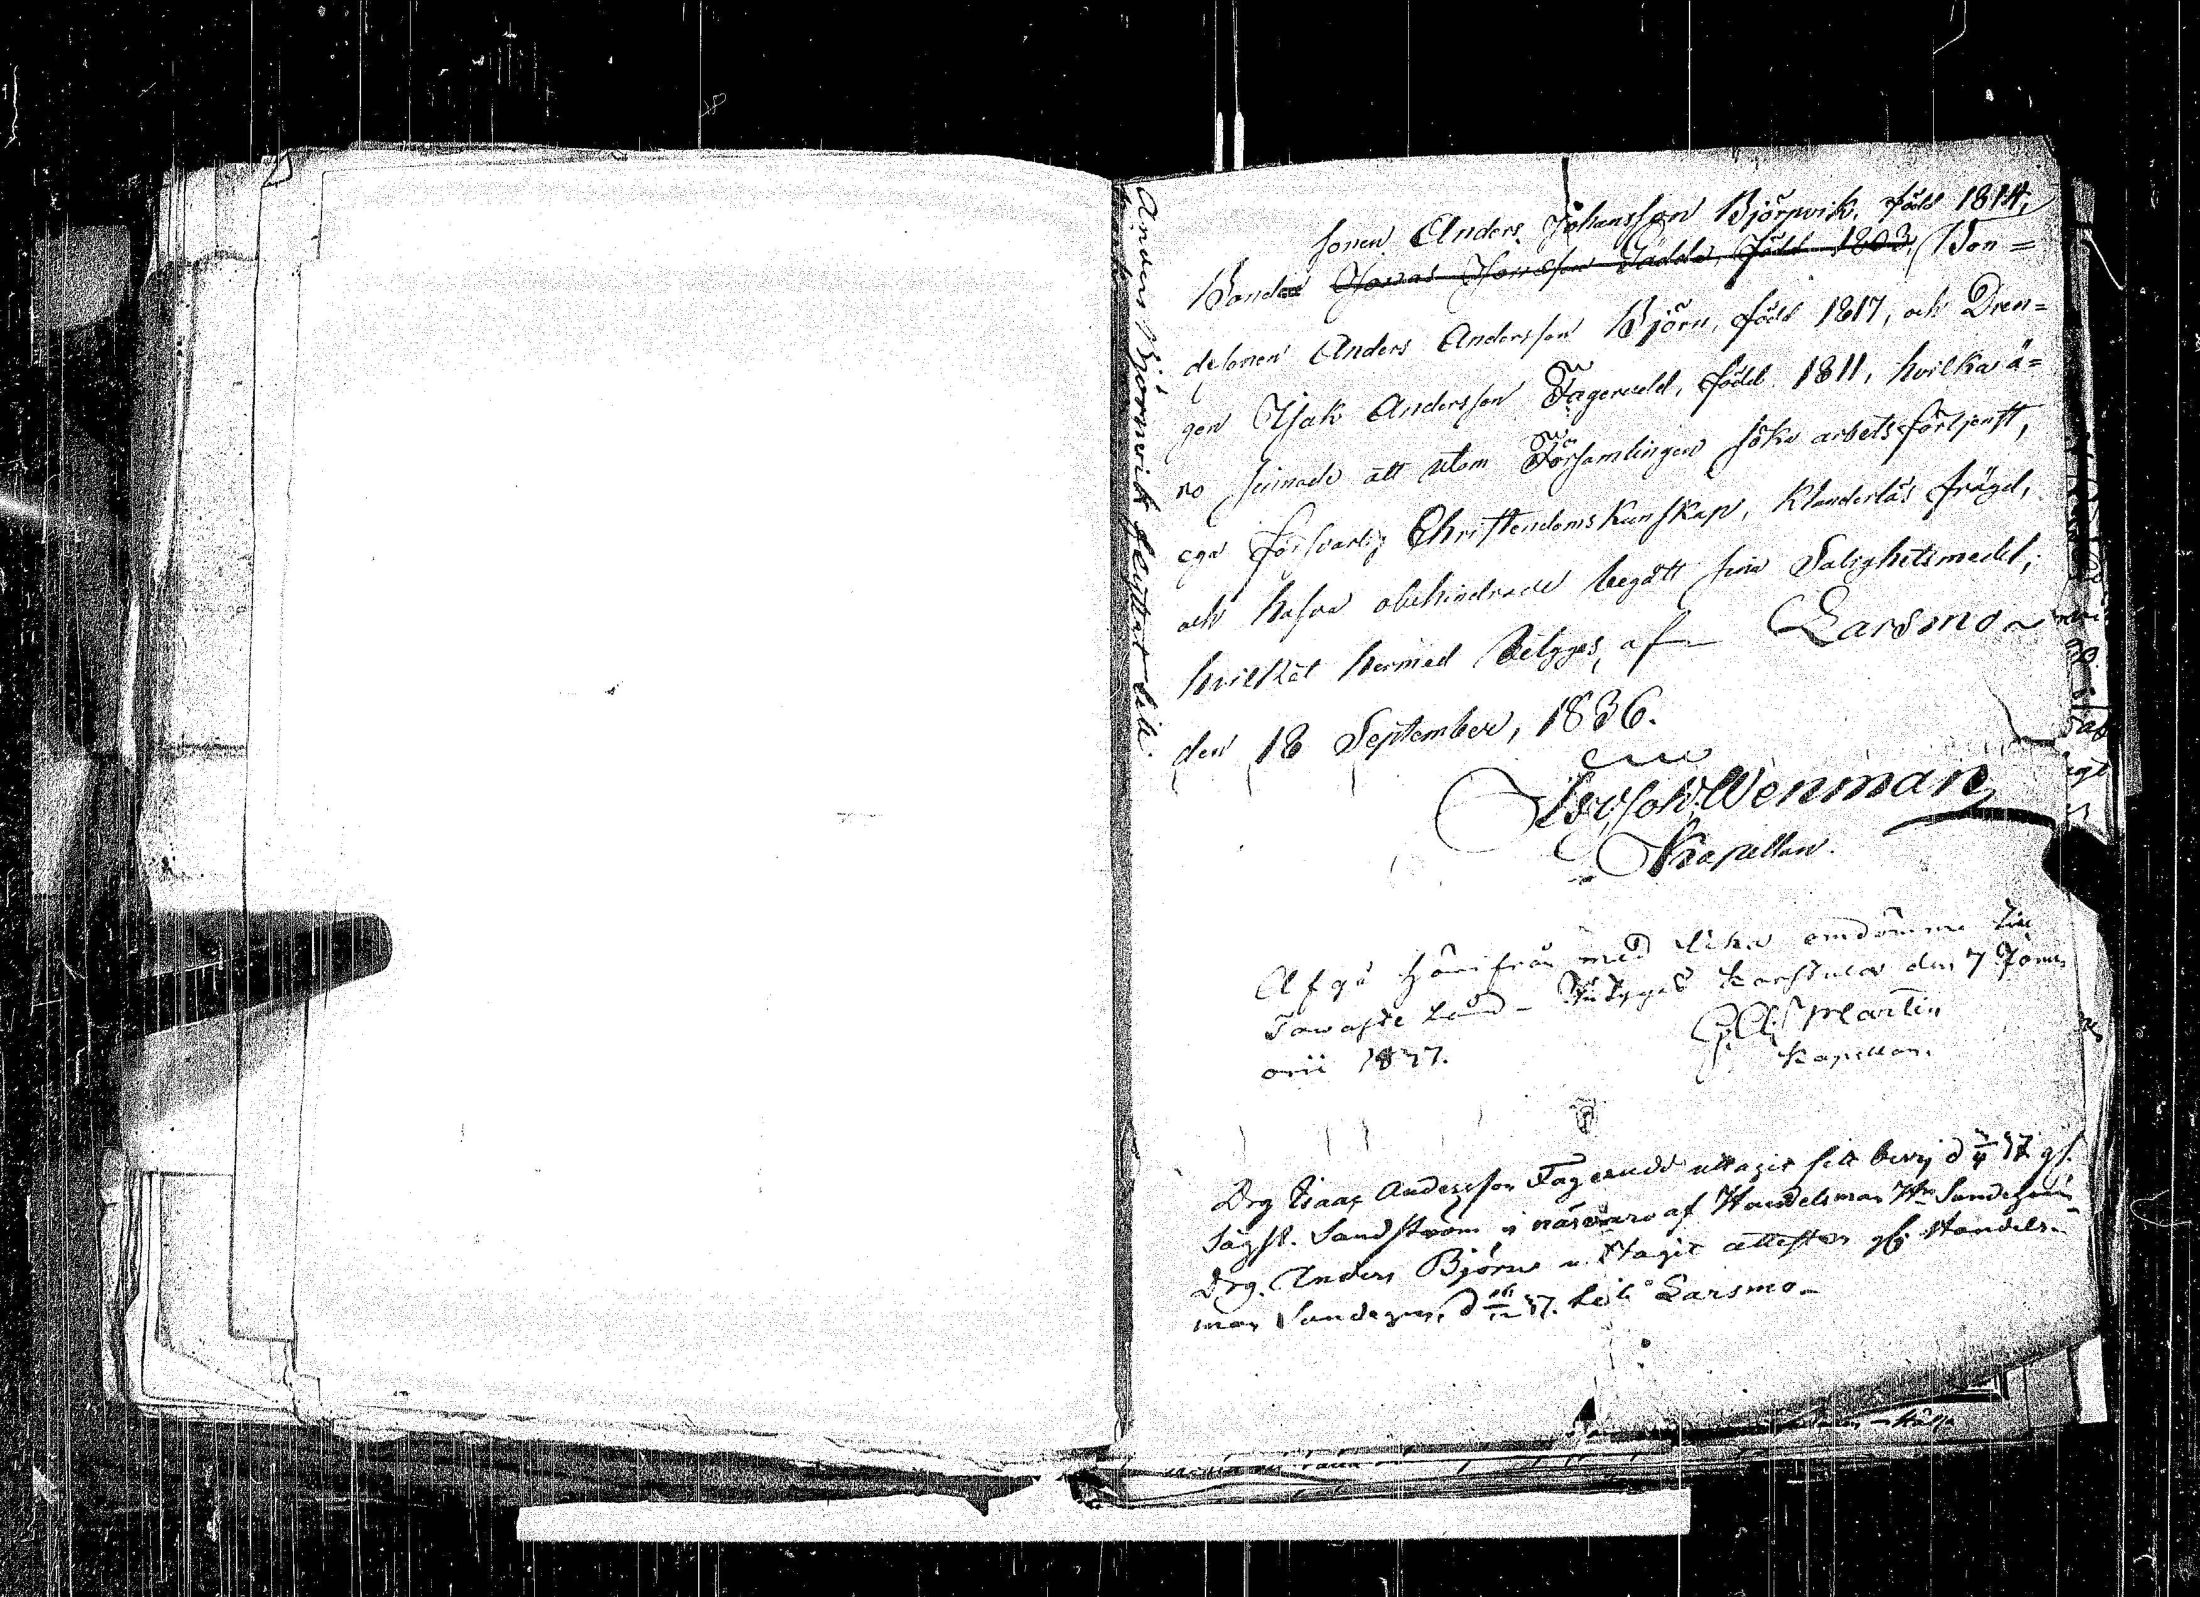 sonen Anders Johansson Björnvik, född 1814,
Bonde Jonas Gädda, född 1803, Bon=
desonen Anders Andersson Björn, född 1817, och Dren=
gen Isak Andersson Fagerudd, född 1811, hvilka ä=
ro sinnade att utom Församlingen söka arbetsförtjenst,
ega försvarlig Christendomskunskap, klanderlös frägd,
och hafva obehindrade begått sina Salighetsmedel;
hvilket hermed betygges, af Larsmo
den 18 September, 1836.
Wenman
Kapellan.
Afgå härifrån med lika omdömme till
Tawastland betygges den 7 Janu
arii 1837.
Martin
Kapellan.
Drg Isaac Andersson Fagerudd uttagit sitt bevij d 37 gl.
Sandström i närvaro af Handelsman
Drg. Anders Björn uttagit attesten Handels-
man d 37. Larsmo
Anders Björnvik